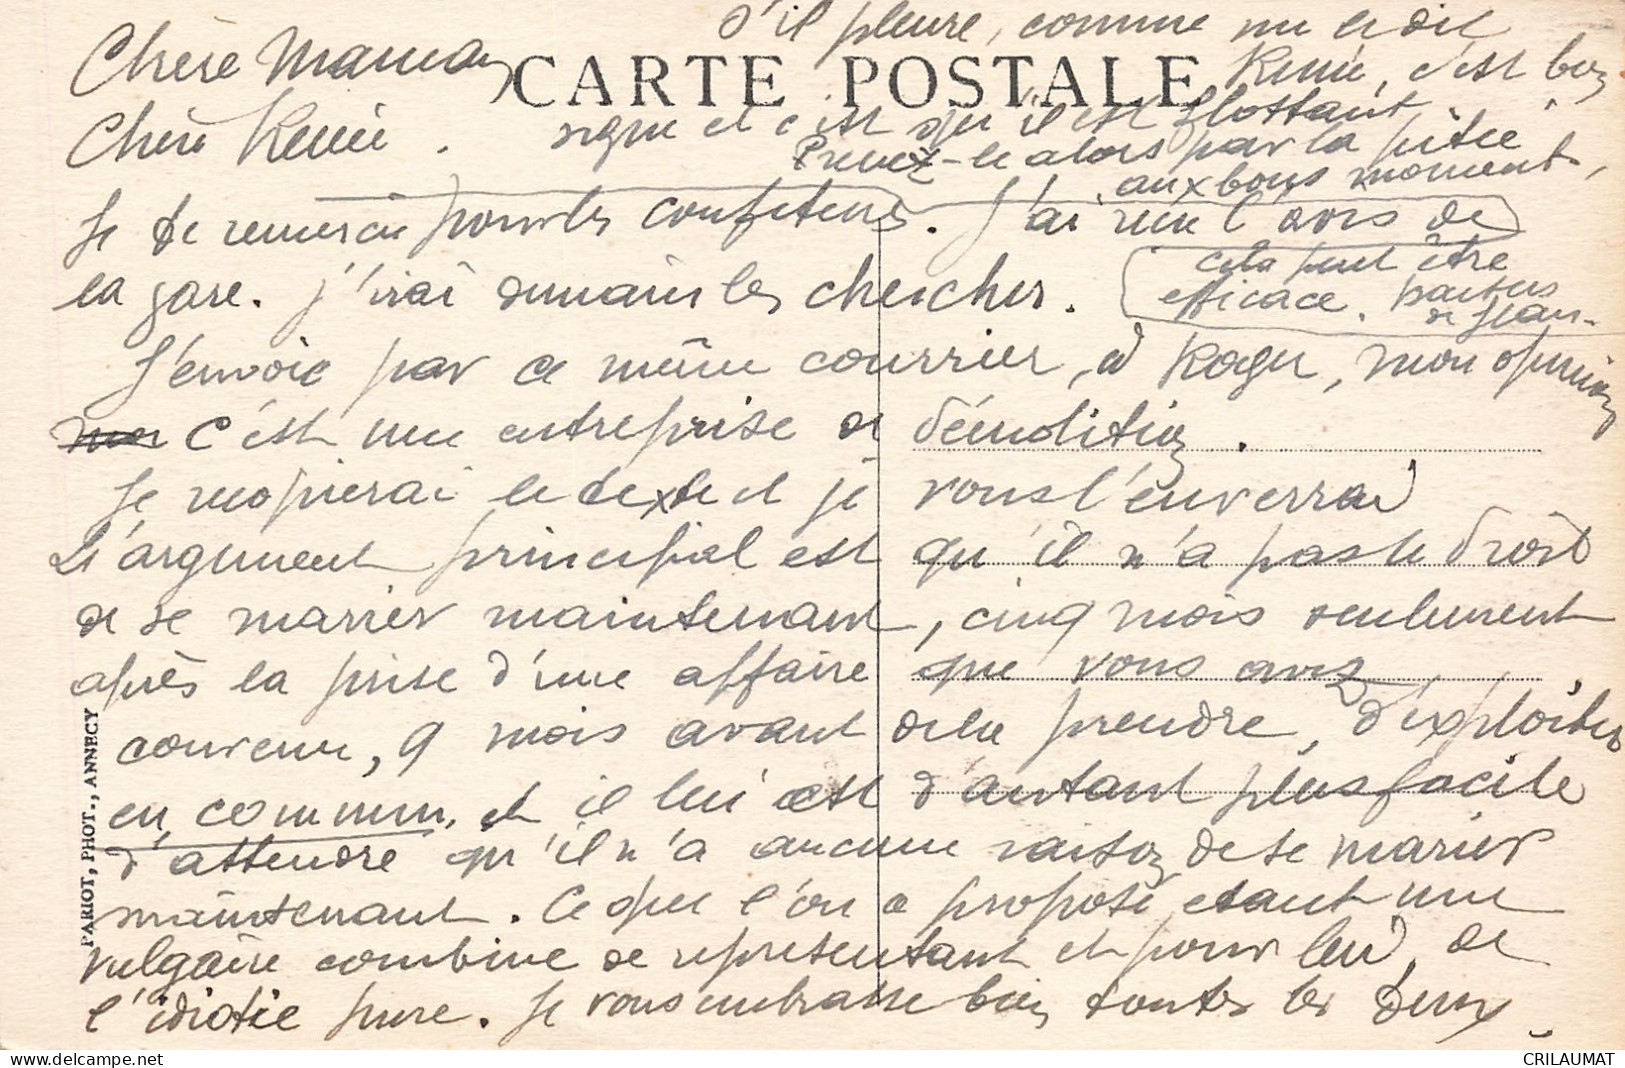 Chère Maman
Chère Renée.
CARTE POSTALE
Je te remercie pour les confitures. J'ai reçu l'avis de
la gare. J'irai demain les chercher.
J'envoie par ce même courrier, à Roger, mon opinion
c'est une entreprise de démolition.
Je recopierai le texte et je vous l'enverrai
L'argument principal est qu'il n'a pas le droit
de se marier maintenant, cinq mois seulement
après la prise d'une affaire que vous avez
convenu, 9 mois avant de la prendre, d'exploiter
en commun. et il lui est d'autant plus facile
d'attendre qu'il n'a aucune raison de se marier
maintenant. Ce que l'on a proposé étant une
vulgaire combine de représentant et pour lui, de
l'idiotie pure. Je vous embrasse bien toutes les deux.
S'il pleure, comme me le dit
Renée, c'est bon
signe et c'est qu'il est flottant.
Prenez-le alors par la pitié
aux bons moments,
cela peut être
efficace.
de Jean.
PARIOT, PHOT., ANNECY
CRILAUMAT